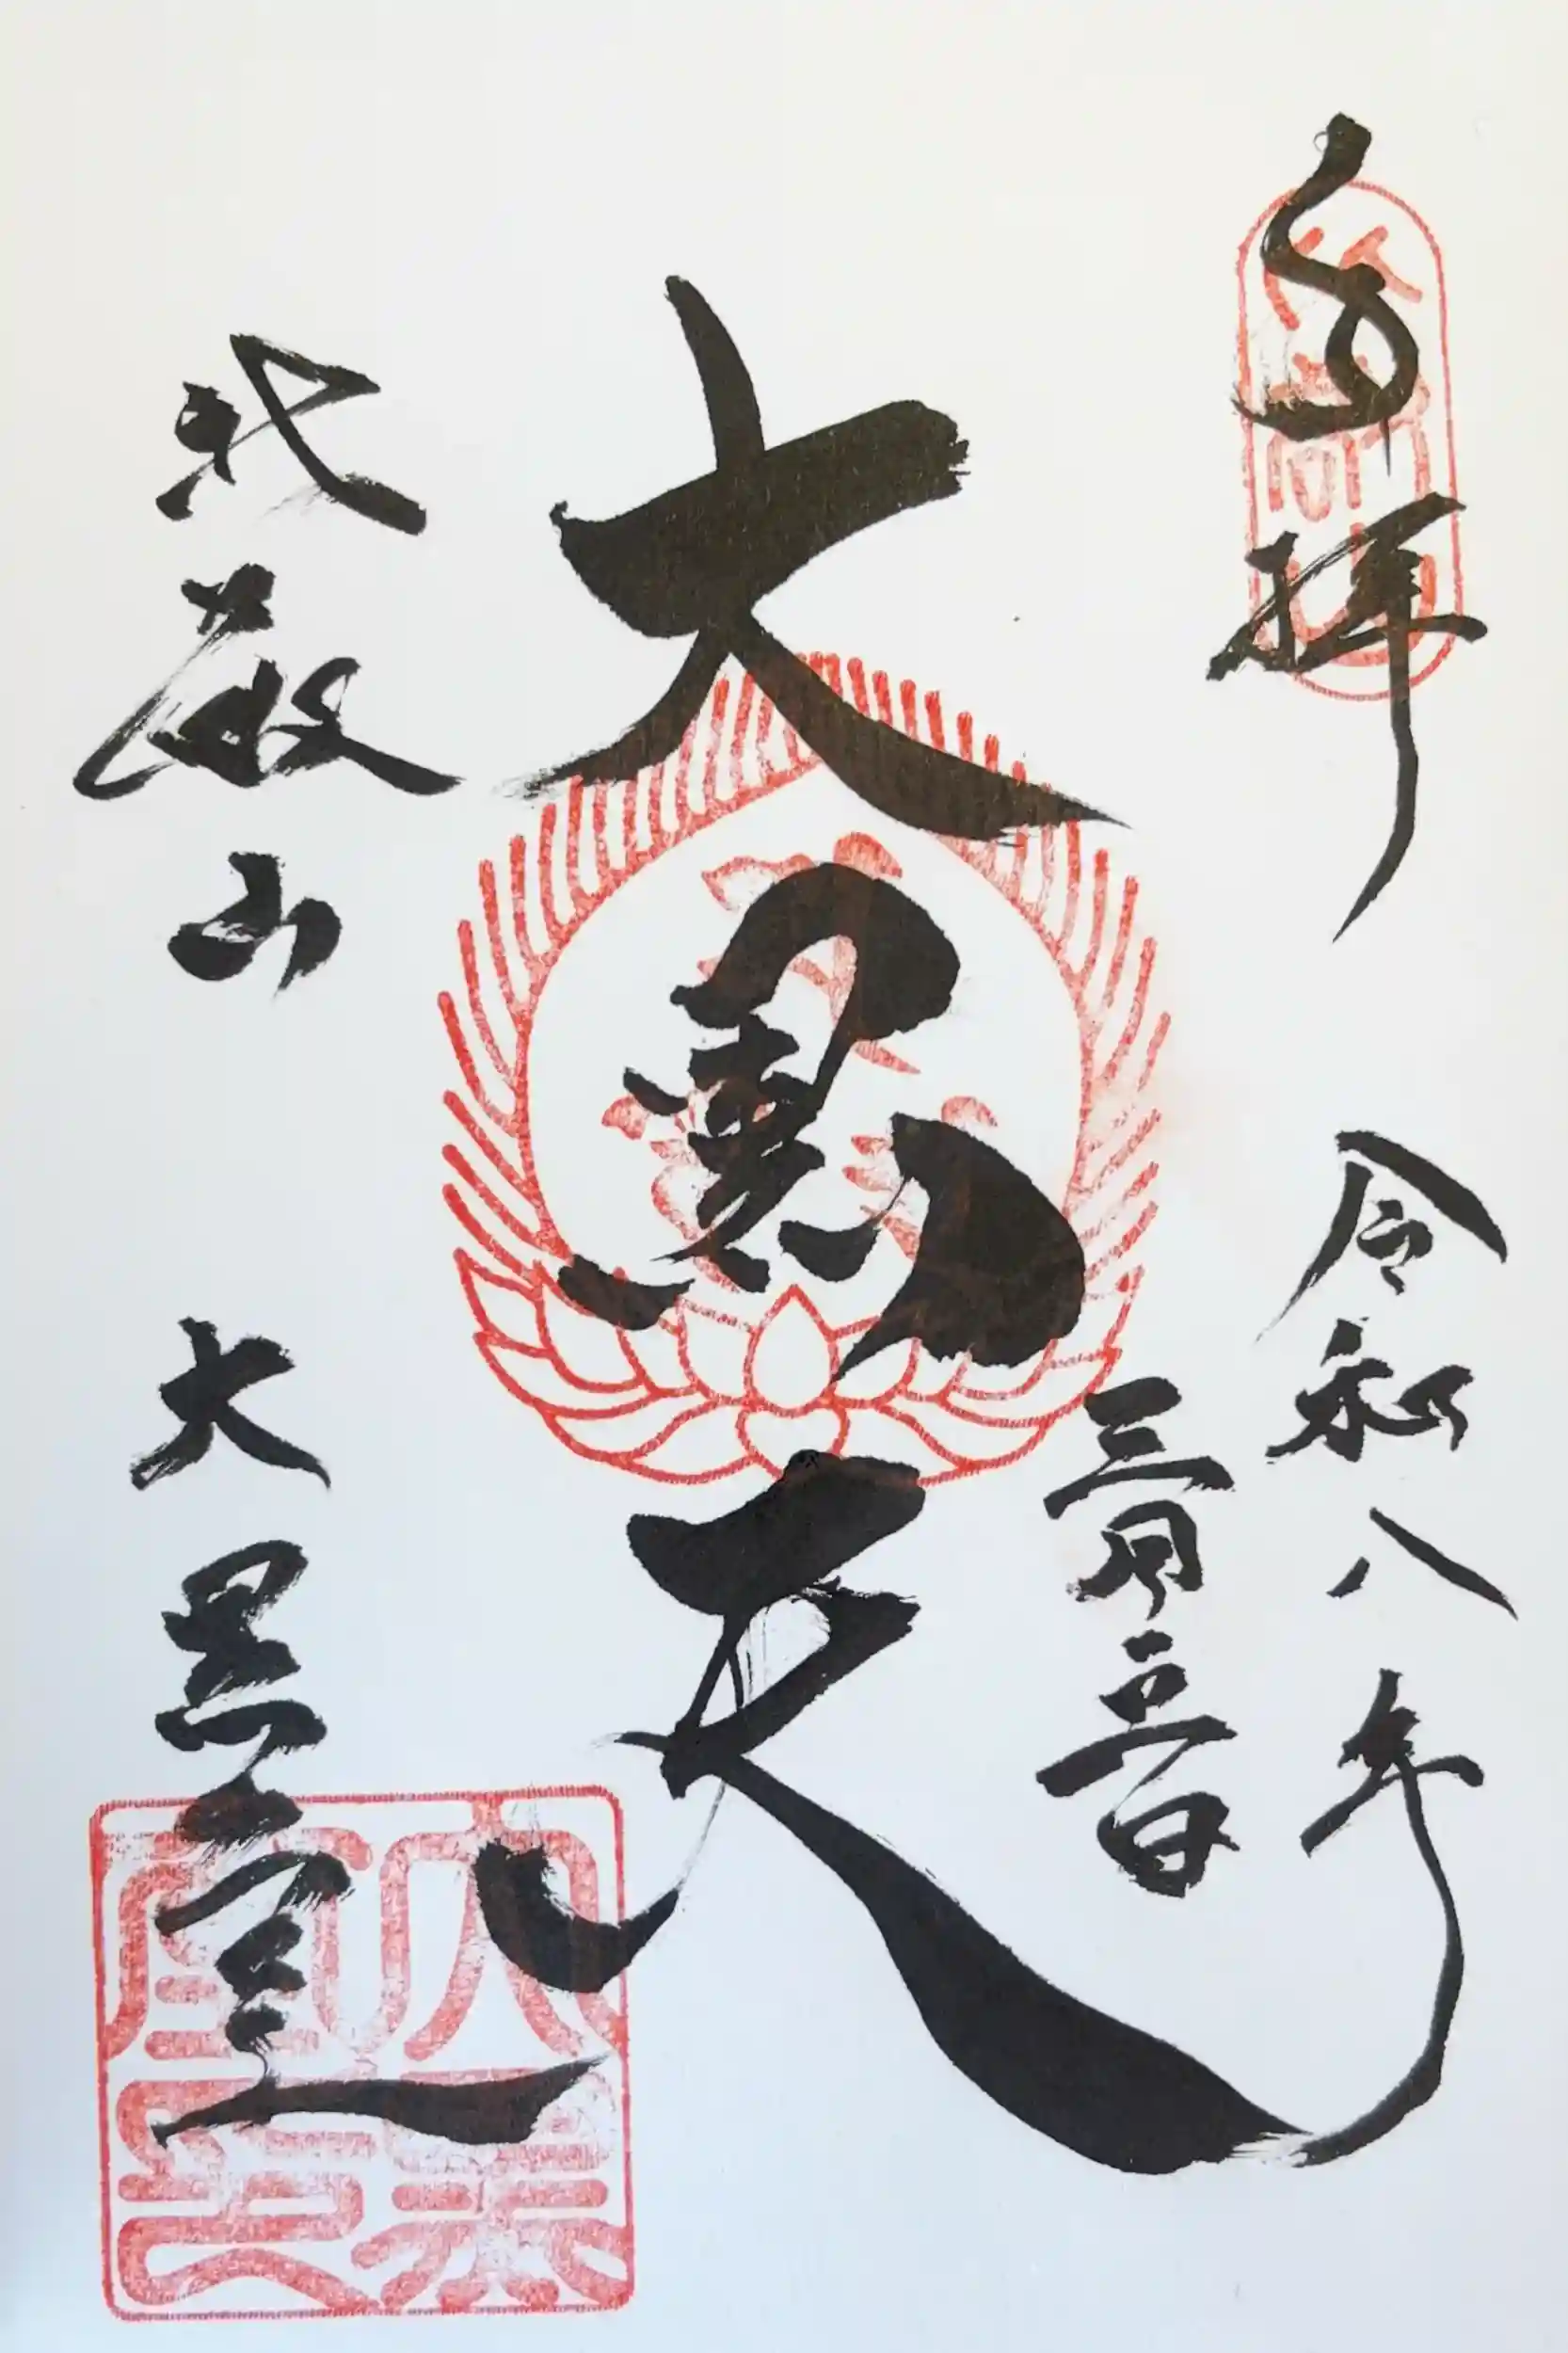 奉拝
令和八年
三月日
大黒天
比叡山 大黒堂
大黒堂印